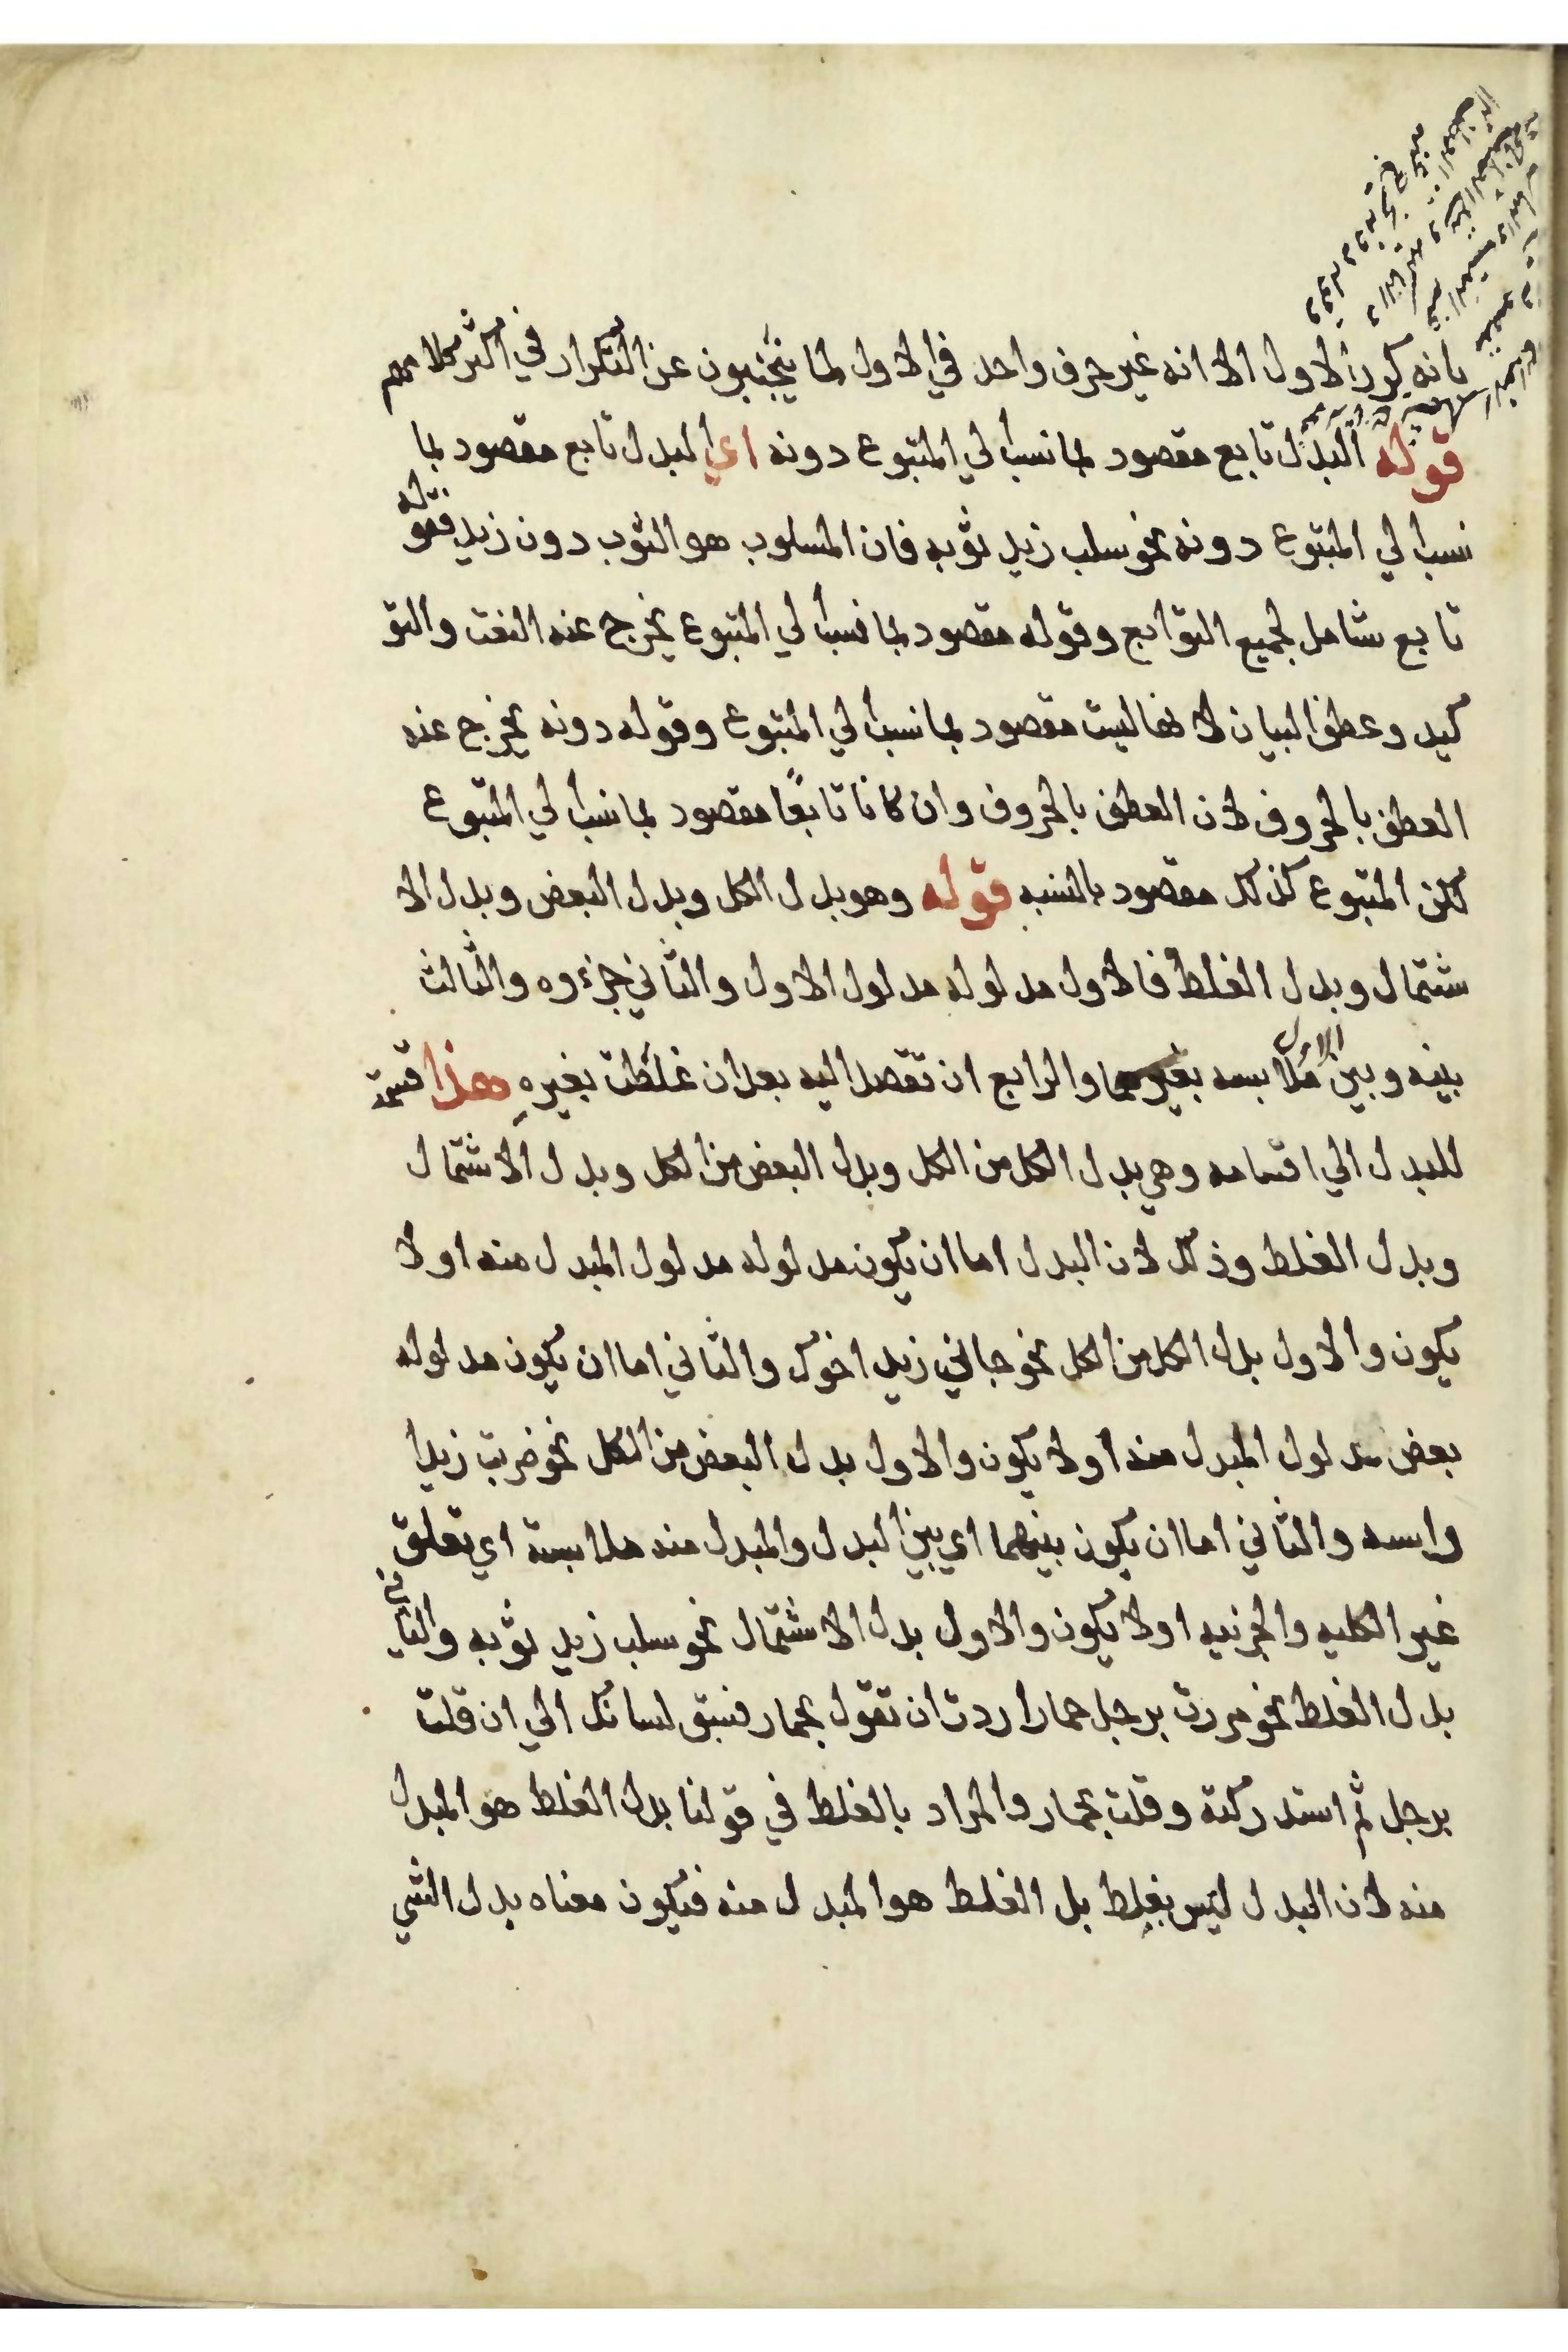 بانه يكرر الاول الا انه غير حرف واحد في الاول لما يتجنبون عن التكرار في اكثر كلامهم
قوله البدل تابع مقصود بما نسب الي المتبوع دونه اي البدل تابع مقصود بما
نسب الي المتبوع دونه نحو سلب زيد ثوبه فان المسلوب هو الثوب دون زيد فقوله
تابع شامل لجميع التوابع وقوله مقصود بما نسب الي المتبوع يخرج عنه النعت والتو
كيد وعطف البيان لانها ليست مقصود بما نسب الي المتبوع وقوله دونه يخرج عنه
العطف بالحروف لان العطف بالحروف وان كانا تابعًا مقصود بما نسب الي المتبوع
لكن المتبوع كذلك مقصود بالنسبه قوله وهو بدل الكل وبدل البعض وبدل الا
شتمال وبدل الغلط فالاول مدلوله مدلول الاول والثاني جزءوه والثالث
بينه وبين الاول ملابسه بغيرهما والرابع ان تقصد اليه بعد ان غلطت بغيرهِ هذا قسمة
للبدل الي اقسامه وهي بدل الكل من الكل وبدل البعض من الكل وبدل الاشتمال
وبدل الغلط وذلك لان البدل اما ان يكون مدلوله مدلول المبدل منه او لا
يكون والاول بدل الكل من الكل نحو جاني زيد اخوك والثاني اما ان يكون مدلوله
بعض مدلول المبدل منه او لا يكون والاول بدل البعض من الكل نحو ضربت زيدا
راسه والثاني اما ان يكون بينهما اي بين البدل والمبدل منه ملابسة اي تعلق
غير الكليه والجزييه او لا يكون والاول بدل الاشتمال نحو سلب زيد ثوبه والثاني
بدل الغلط نحو مررت برجل حمار اردت ان تقول بحمار فسبق لسانك الي ان قلت
برجل ثم استدركته وقلت بحمار والمراد بالغلط في قولنا بدل الغلط هو المبدل
منه لان البدل ليس بغلط بل الغلط هو المبدل منه فيكون معناه بدل الشي